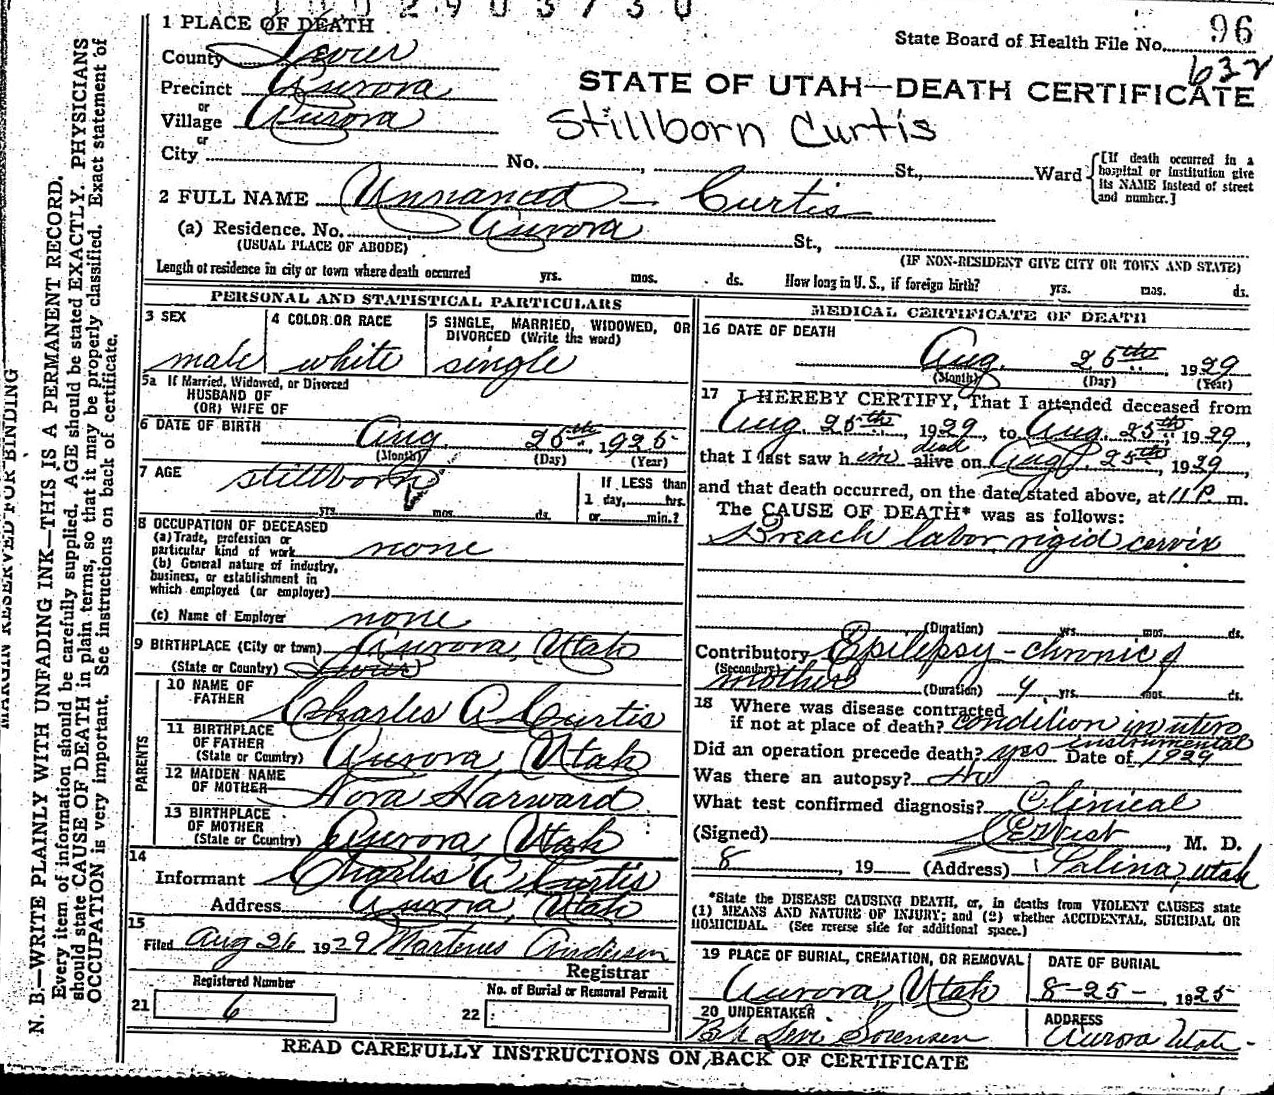 1 PLACE OF DEATH
County Sevier
State Board of Health File No. 96
632
Precinct Aurora
or
Village Aurora
or
STATE OF UTAH—DEATH CERTIFICATE
Stillborn Curtis
City No. , St., Ward
[If death occurred in a hospital or institution give its NAME instead of street and number.]
2 FULL NAME Unnamed - Curtis
(a) Residence. No. Aurora St.,
(USUAL PLACE OF ABODE) (IF NON-RESIDENT GIVE CITY OR TOWN AND STATE)
Length of residence in city or town where death occurred yrs. mos. ds. How long in U. S., if foreign birth? yrs. mos. ds.
PERSONAL AND STATISTICAL PARTICULARS
3 SEX
male
4 COLOR OR RACE
white
5 SINGLE, MARRIED, WIDOWED, OR
DIVORCED (Write the word)
single
5a If Married, Widowed, or Divorced
HUSBAND OF
(OR) WIFE OF
6 DATE OF BIRTH Aug. 25th, 1925
(Month) (Day) (Year)
7 AGE stillborn
yrs. mos. ds.
If LESS than
1 day, hrs.
or min.?
8 OCCUPATION OF DECEASED
(a) Trade, profession or
particular kind of work none
(b) General nature of industry,
business, or establishment in
which employed (or employer)
(c) Name of Employer none
9 BIRTHPLACE (City or town) Aurora, Utah
(State or Country) Sevier
PARENTS
10 NAME OF
FATHER Charles A Curtis
11 BIRTHPLACE
OF FATHER
(State or Country) Aurora, Utah
12 MAIDEN NAME
OF MOTHER Nora Harward
13 BIRTHPLACE
OF MOTHER
(State or Country) Aurora, Utah
14
Informant Charles A Curtis
Address Aurora, Utah
15
Filed Aug 26 1929 Martenus Anderson
Registrar
Registered Number
21 6
No. of Burial or Removal Permit
22
MEDICAL CERTIFICATE OF DEATH
16 DATE OF DEATH
Aug. 25th, 1929
(Month) (Day) (Year)
17 I HEREBY CERTIFY, That I attended deceased from
Aug. 25th, 1929, to Aug. 25th 1929,
that I last saw him dead alive on Aug. 25th, 1929,
and that death occurred, on the date stated above, at 11 P. m.
The CAUSE OF DEATH* was as follows:
Breach labor rigid cervix
(Duration) yrs. mos. ds.
Contributory Epilepsy - chronic of
(Secondary) mother (Duration) 4 yrs. mos. ds.
18 Where was disease contracted
if not at place of death? condition in utero
Did an operation precede death? yes instrumental Date of 1929
Was there an autopsy? No
What test confirmed diagnosis? Clinical
(Signed) , M. D.
8 , 19 (Address) Salina, Utah
*State the DISEASE CAUSING DEATH, or, in deaths from VIOLENT CAUSES state
(1) MEANS AND NATURE OF INJURY; and (2) whether ACCIDENTAL, SUICIDAL OR
HOMICIDAL. (See reverse side for additional space.)
19 PLACE OF BURIAL, CREMATION, OR REMOVAL
Aurora, Utah
DATE OF BURIAL
8-25-, 1925
20 UNDERTAKER
Sorensen
ADDRESS
Aurora Utah
READ CAREFULLY INSTRUCTIONS ON BACK OF CERTIFICATE
MARGIN RESERVED FOR BINDING
N. B.—WRITE PLAINLY WITH UNFADING INK—THIS IS A PERMANENT RECORD.
Every item of information should be carefully supplied. AGE should be stated EXACTLY. PHYSICIANS
should state CAUSE OF DEATH in plain terms, so that it may be properly classified. Exact statement of
OCCUPATION is very important. See instructions on back of certificate.